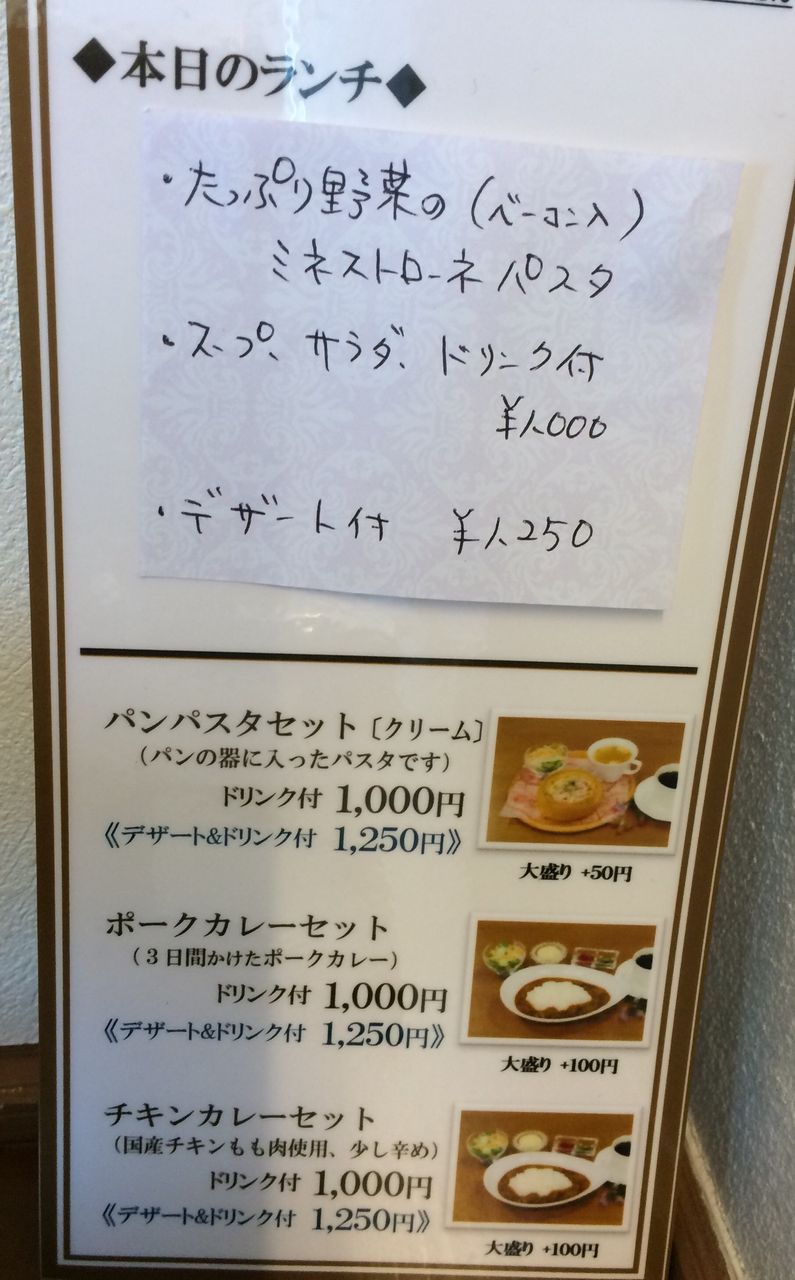 ◆本日のランチ◆
・たっぷり野菜の(ベーコン入)
ミネストローネパスタ
・スープ、サラダ、ドリンク付
¥1.000
・デザート付 ¥1.250
パンパスタセット〔クリーム〕
（パンの器に入ったパスタです）
ドリンク付 1,000円
《デザート&ドリンク付 1,250円》
大盛り +50円
ポークカレーセット
（3日間かけたポークカレー）
ドリンク付 1,000円
《デザート&ドリンク付 1,250円》
大盛り +100円
チキンカレーセット
（国産チキンもも肉使用、少し辛め）
ドリンク付 1,000円
《デザート&ドリンク付 1,250円》
大盛り +100円